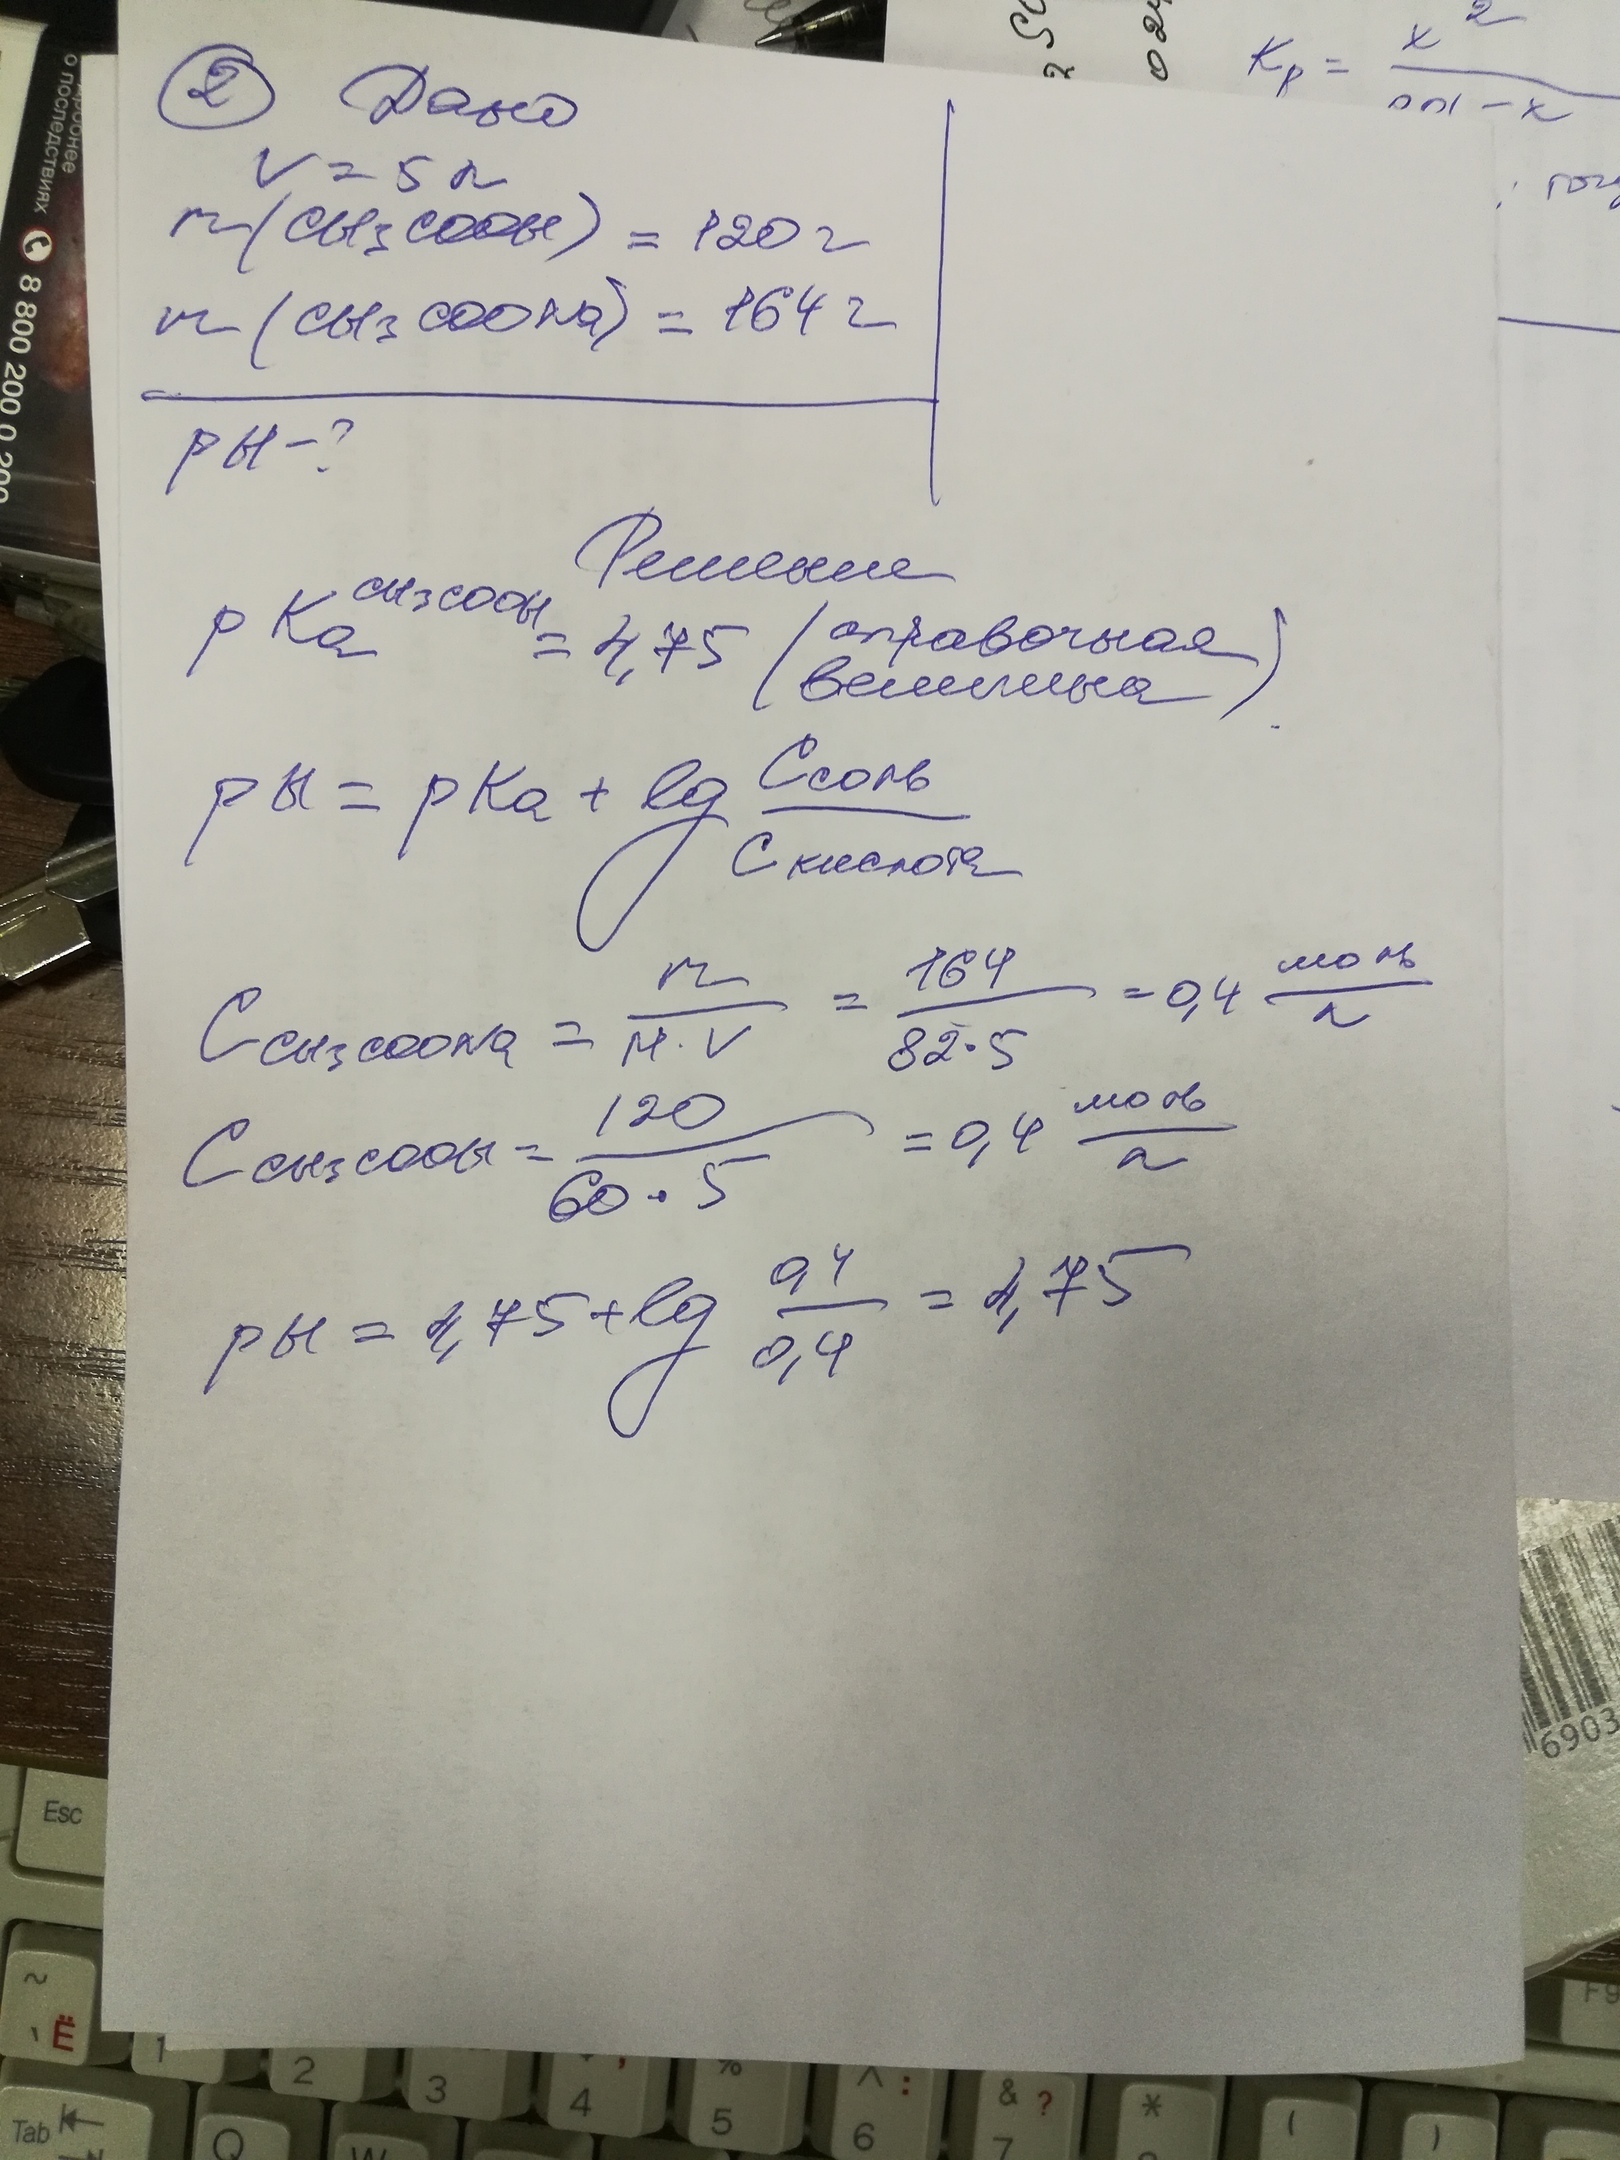 ② Дано
V = 5 л
m(CH₃COOH) = 120 г
m(CH₃COONa) = 164 г
pH - ?
Решение
pKa CH₃COOH = 4,75 (справочная величина).
pH = pKa + lg Cсоль / Cкислота
C CH₃COONa = m / M·V = 164 / 82·5 = 0,4 моль / л
C CH₃COOH = 120 / 60·5 = 0,4 моль / л
pH = 4,75 + lg 0,4 / 0,4 = 4,75
Kp = x²
о последствиях
8 800 200 0 200
6903
Esc
~
Ё
1
2
3
4
%
5
^ :
6
& ?
7
*
(
)
F9
Tab
Q
W